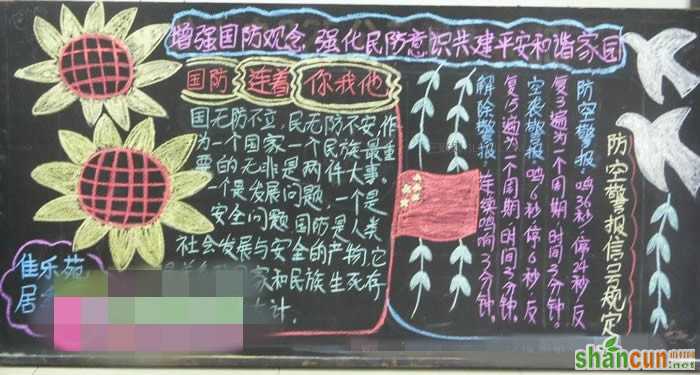 增强国防观念 强化民防意识共建平安和谐家园
国防 连着 你我他
国无防不立，民无防不安，作
为一个国家一个民族最重
要的无非是两件大事。
一个是发展问题，一个是
安全问题国防是人类
社会发展与安全的产物，它
国家和民族生死存
计。
防空警报信号规定
防空警报：鸣36秒，停24秒，反
复3遍为一个周期 时间3分钟。
空袭警报：鸣6秒停6秒，反
复15遍为一个周期 时间3分钟。
解除警报：连续鸣响3分钟。
佳乐苑
居
shancun
.net